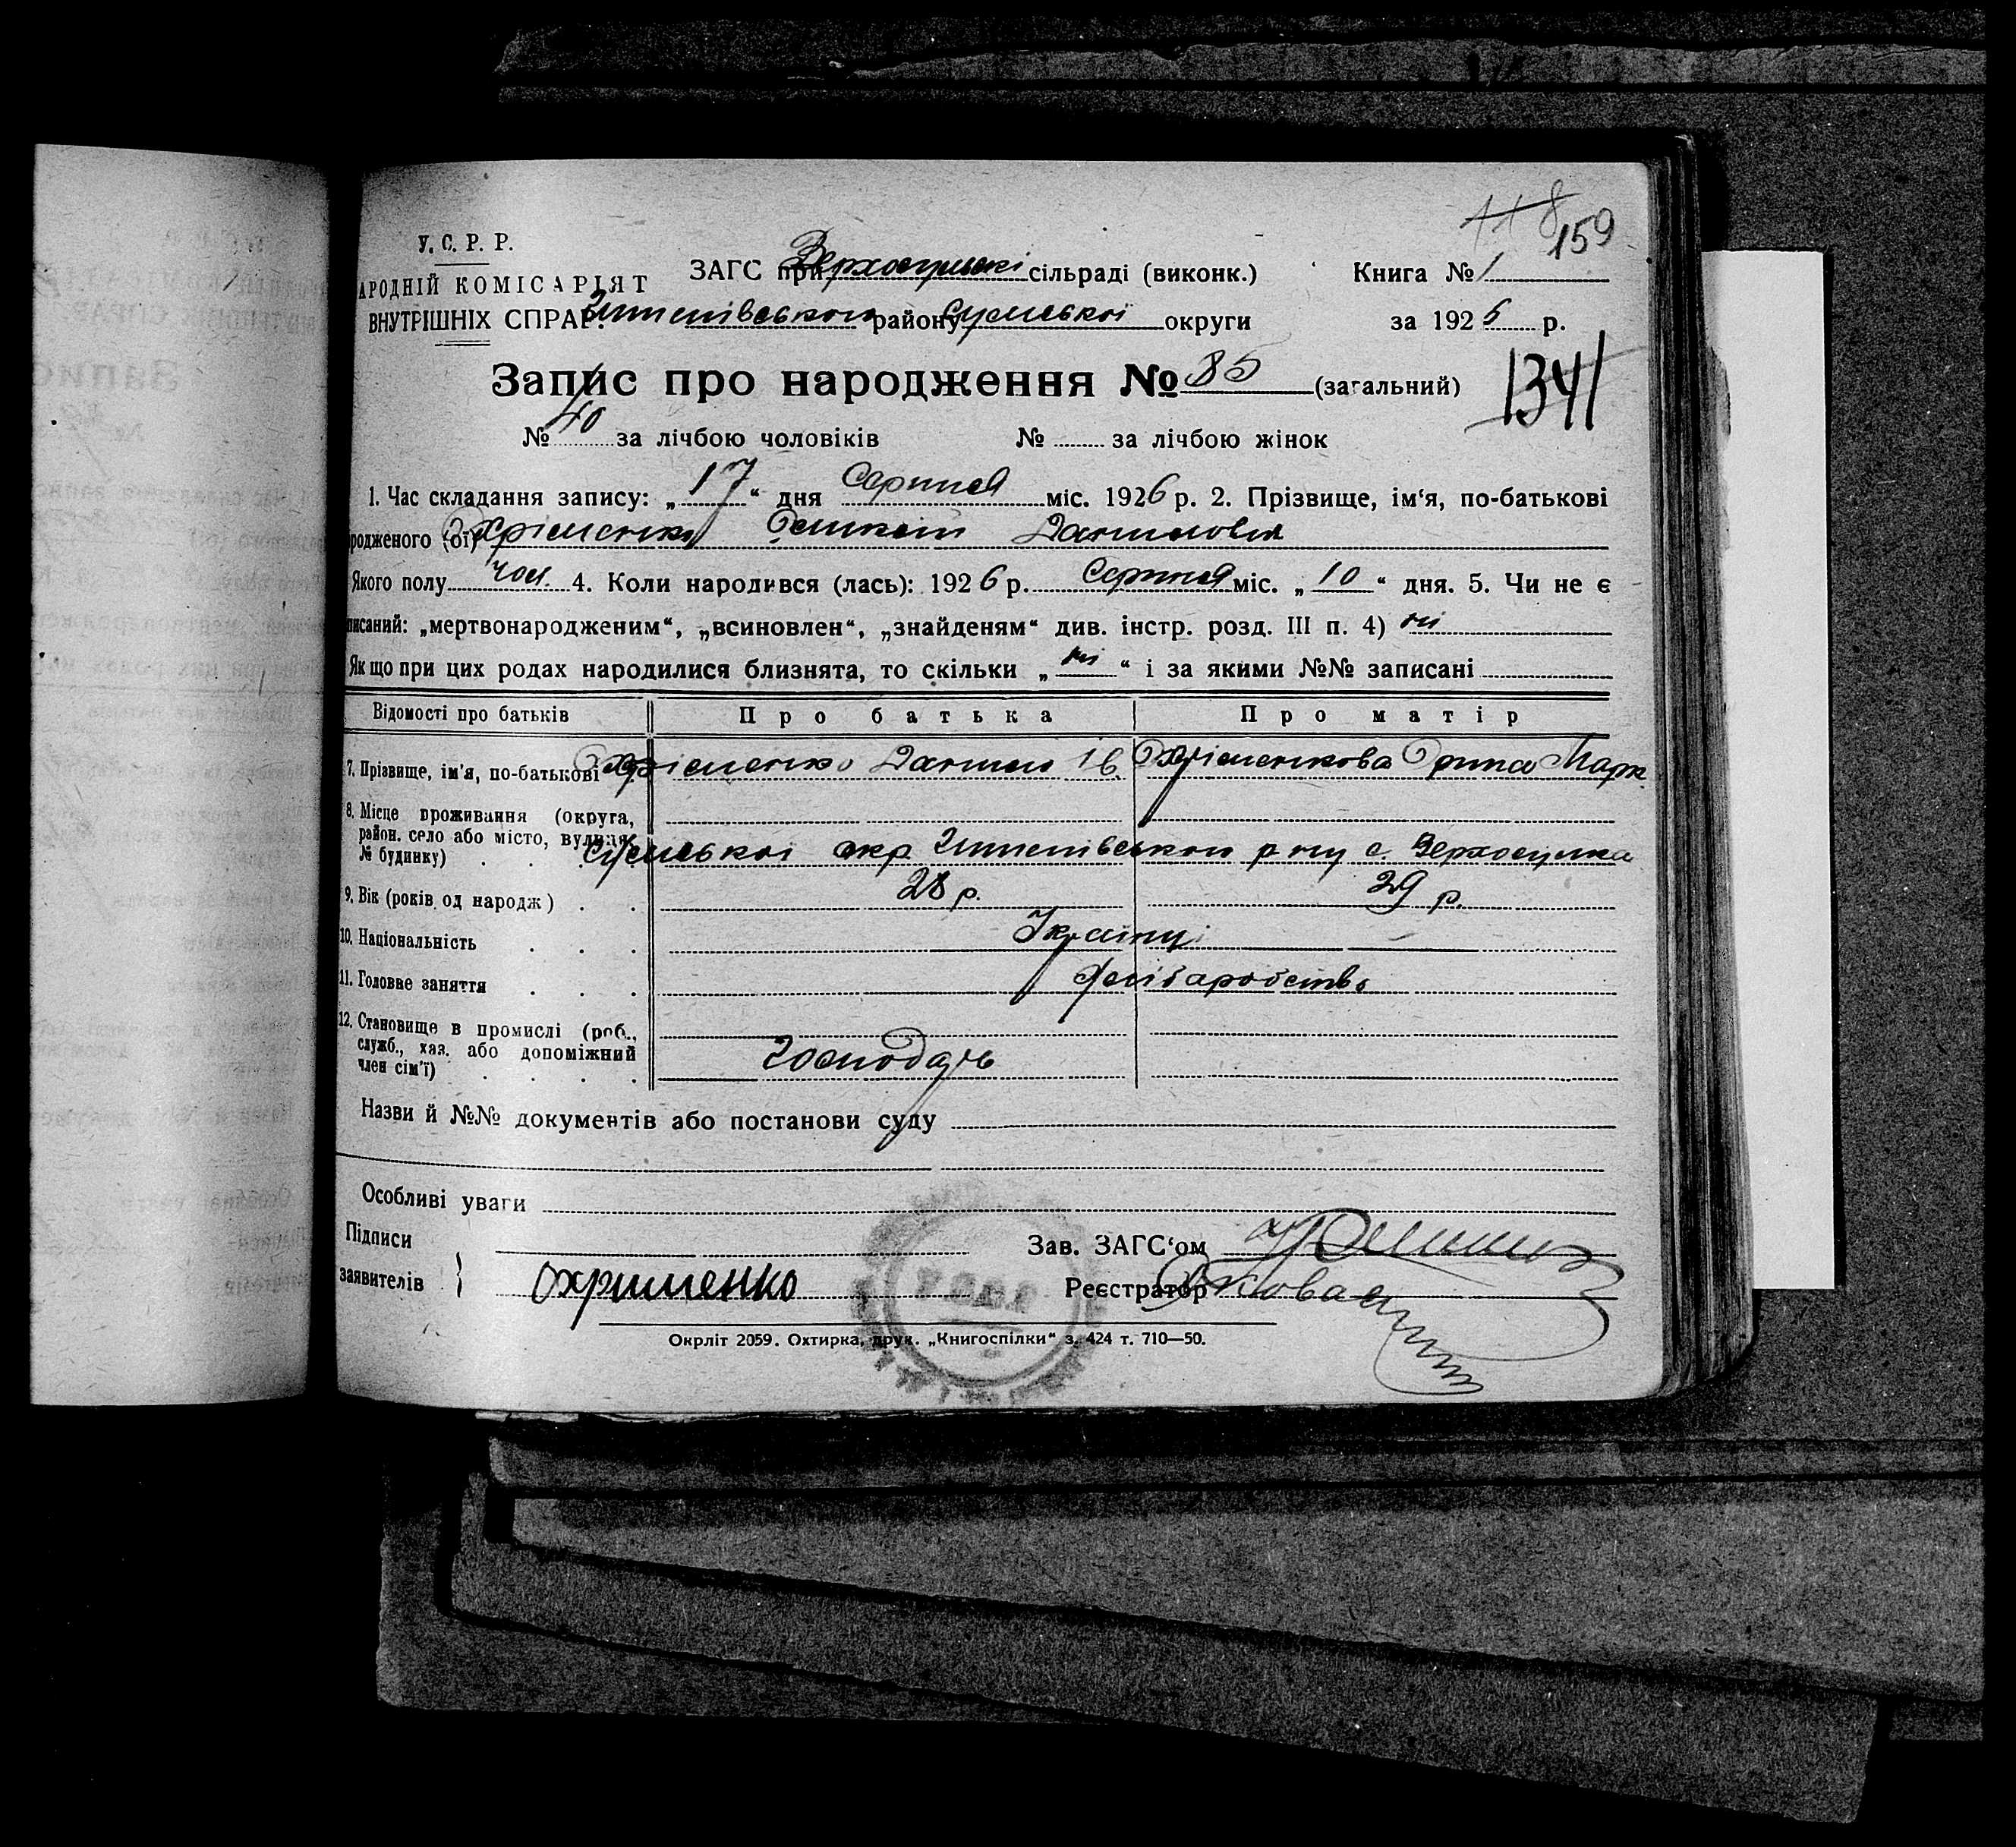 118 159
У. С. Р. Р.
АРОДНІЙ КОМІСАРІЯТ
ВНУТРІШНІХ СПРАВ.
ЗАГС при Верхосульскі сільраді (виконк.) Книга № 1
Штепівського району Сумської округи за 1926 р.
Запис про народження № 85 (загальний) 1341
№ 40 за лічбою чоловіків № за лічбою жінок
1. Час складання запису: „17“ дня Серпня міс. 1926 р. 2. Прізвище, ім‘я, по-батькові
родженого (ої) Охріменко Данилович
Якого полу чол. 4. Коли народився (лась): 1926 р. Серпня міс. „10“ дня. 5. Чи не є
писаний: „мертвонародженим“, „всиновлен“, „знайденям“ див. інстр. розд. III п. 4) ні
Якщо при цих родах народилися близнята, то скільки „ні“ і за якими №№ записані
Відомості про батьків Про батька Про матір
7. Прізвище, ім‘я, по-батькові Охріменко Данило Ів Охріменкова Орина Марк.
8. Місце проживання (округа,
район. село або місто, вулиця,
№ будинку) . . . Сумської окр. Штепівського р ну с. Верхосулка
9. Вік (років од народж) . . 28 р. 29 р.
10. Національність . . . Українці
11. Головне заняття . . . Хліборобство
12. Становище в промислі (роб.,
служб., хаз. або допоміжний
член сім‘ї) . . . . Господарь
Назви й №№ документів або постанови суду
Особливі уваги
Підписи
заявителів } Охрименко
Зав. ЗАГС‘ом
Реєстратор
Окрліт 2059. Охтирка, друк. „Книгоспілки“ з. 424 т. 710—50.